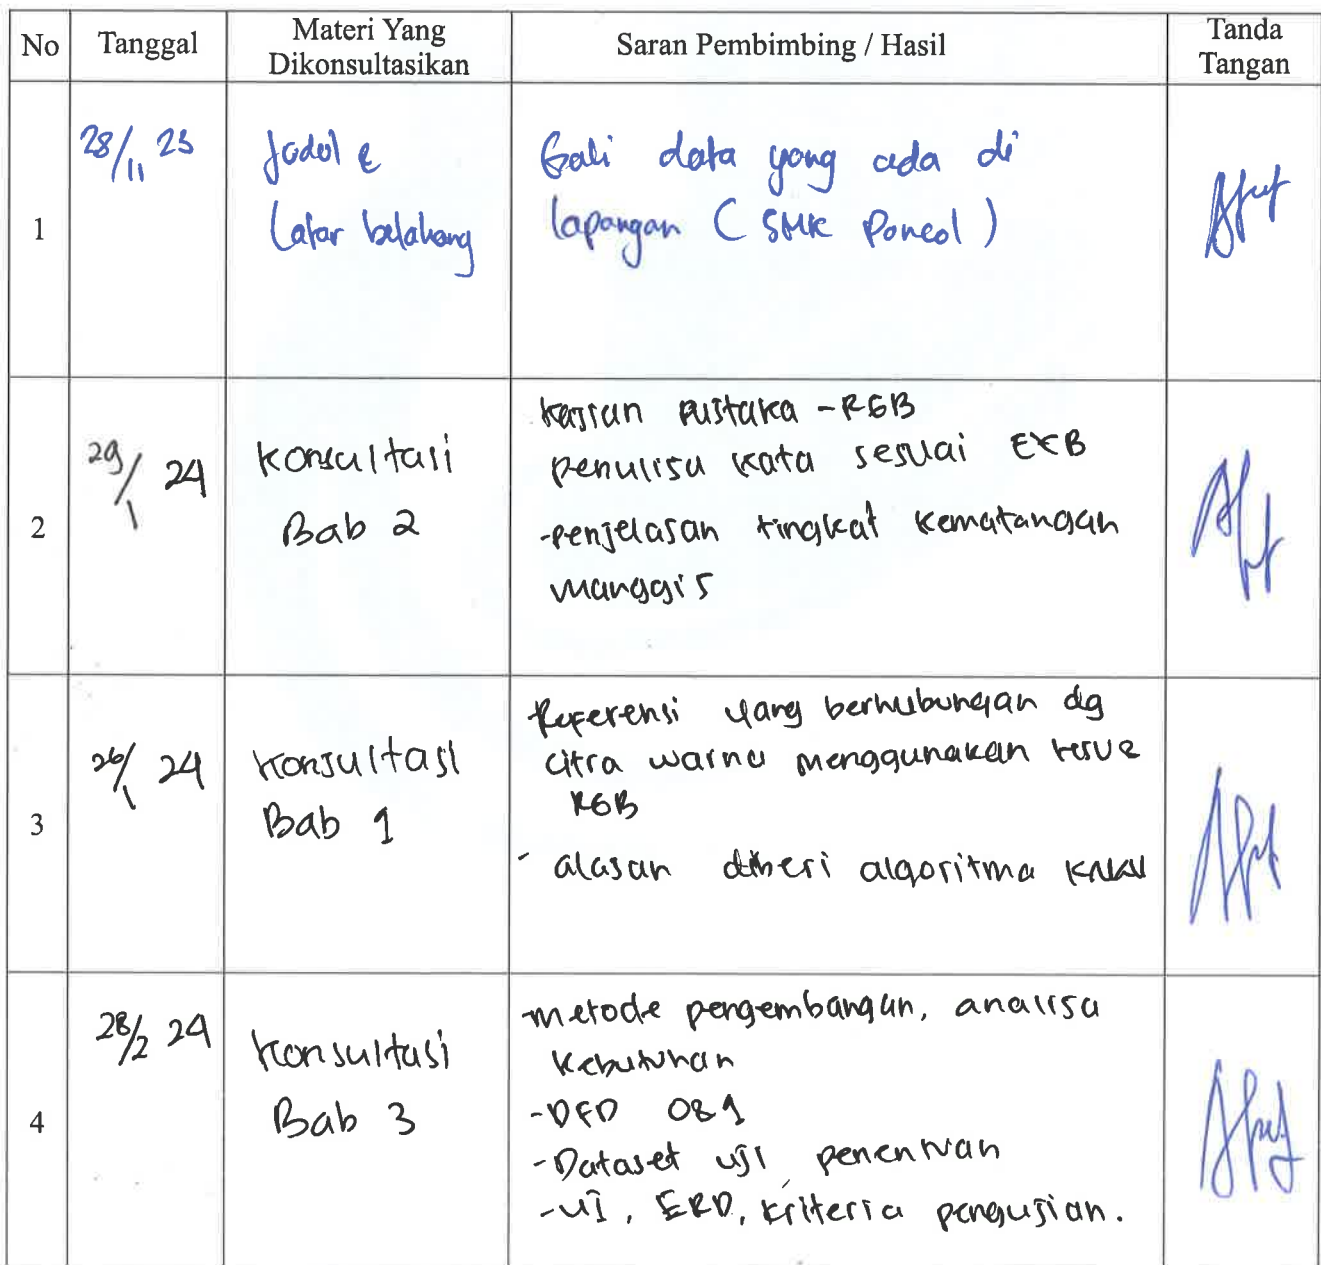 No Tanggal Materi Yang Dikonsultasikan Saran Pembimbing / Hasil Tanda Tangan
1
28/11 23
Judul &
Latar belakang
Gali data yang ada di
lapangan ( SMK Poncol )
2
29/1 24
Konsultasi
Bab 2
kajian pustaka - RGB
penulisa kata sesuai EYB
-penjelasan tingkat kematangan
manggis
3
26/1 24
Konsultasi
Bab 1
Referensi yang berhubungan dg
citra warna menggunakan
RGB
- alasan diberi algoritma KNN
4
28/2 24
Konsultasi
Bab 3
-metode pengembangan, analisa
kebutuhan
-DFD 0&1
-Dataset uji penentuan
-UI, ERD, kriteria pengujian.